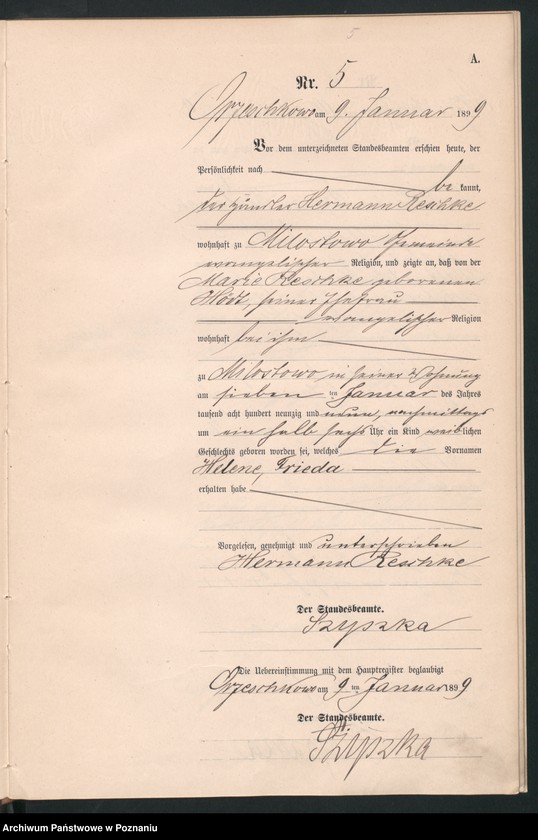 5
A.
Nr. 5
Orzeschkowo am 9. Januar 1899
Vor dem unterzeichneten Standesbeamten erschien heute, der
Persönlichkeit nach
be kannt,
der Händler Hermann Reschke
wohnhaft zu Milostowo Gemeinde
evangelischer Religion, und zeigte an, daß von der
Marie Reschke geborenen
seiner Ehefrau
evangelischer Religion
wohnhaft bei ihm
zu Milostowo, in seiner Wohnung
am sieben ten Januar des Jahres
tausend acht hundert neunzig und neun, nachmittags
um ein halb sechs Uhr ein Kind weiblichen
Geschlechts geboren worden sei, welches die Vornamen
Helene, Frieda
erhalten habe
Vorgelesen, genehmigt und unterschrieben
Hermann Reschke
Der Standesbeamte.
Szyszka
Die Uebereinstimmung mit dem Hauptregister beglaubigt
Orzeschkowo am 9 ten Januar 1899
Der Standesbeamte.
Szyszka
Archiwum Państwowe w Poznaniu